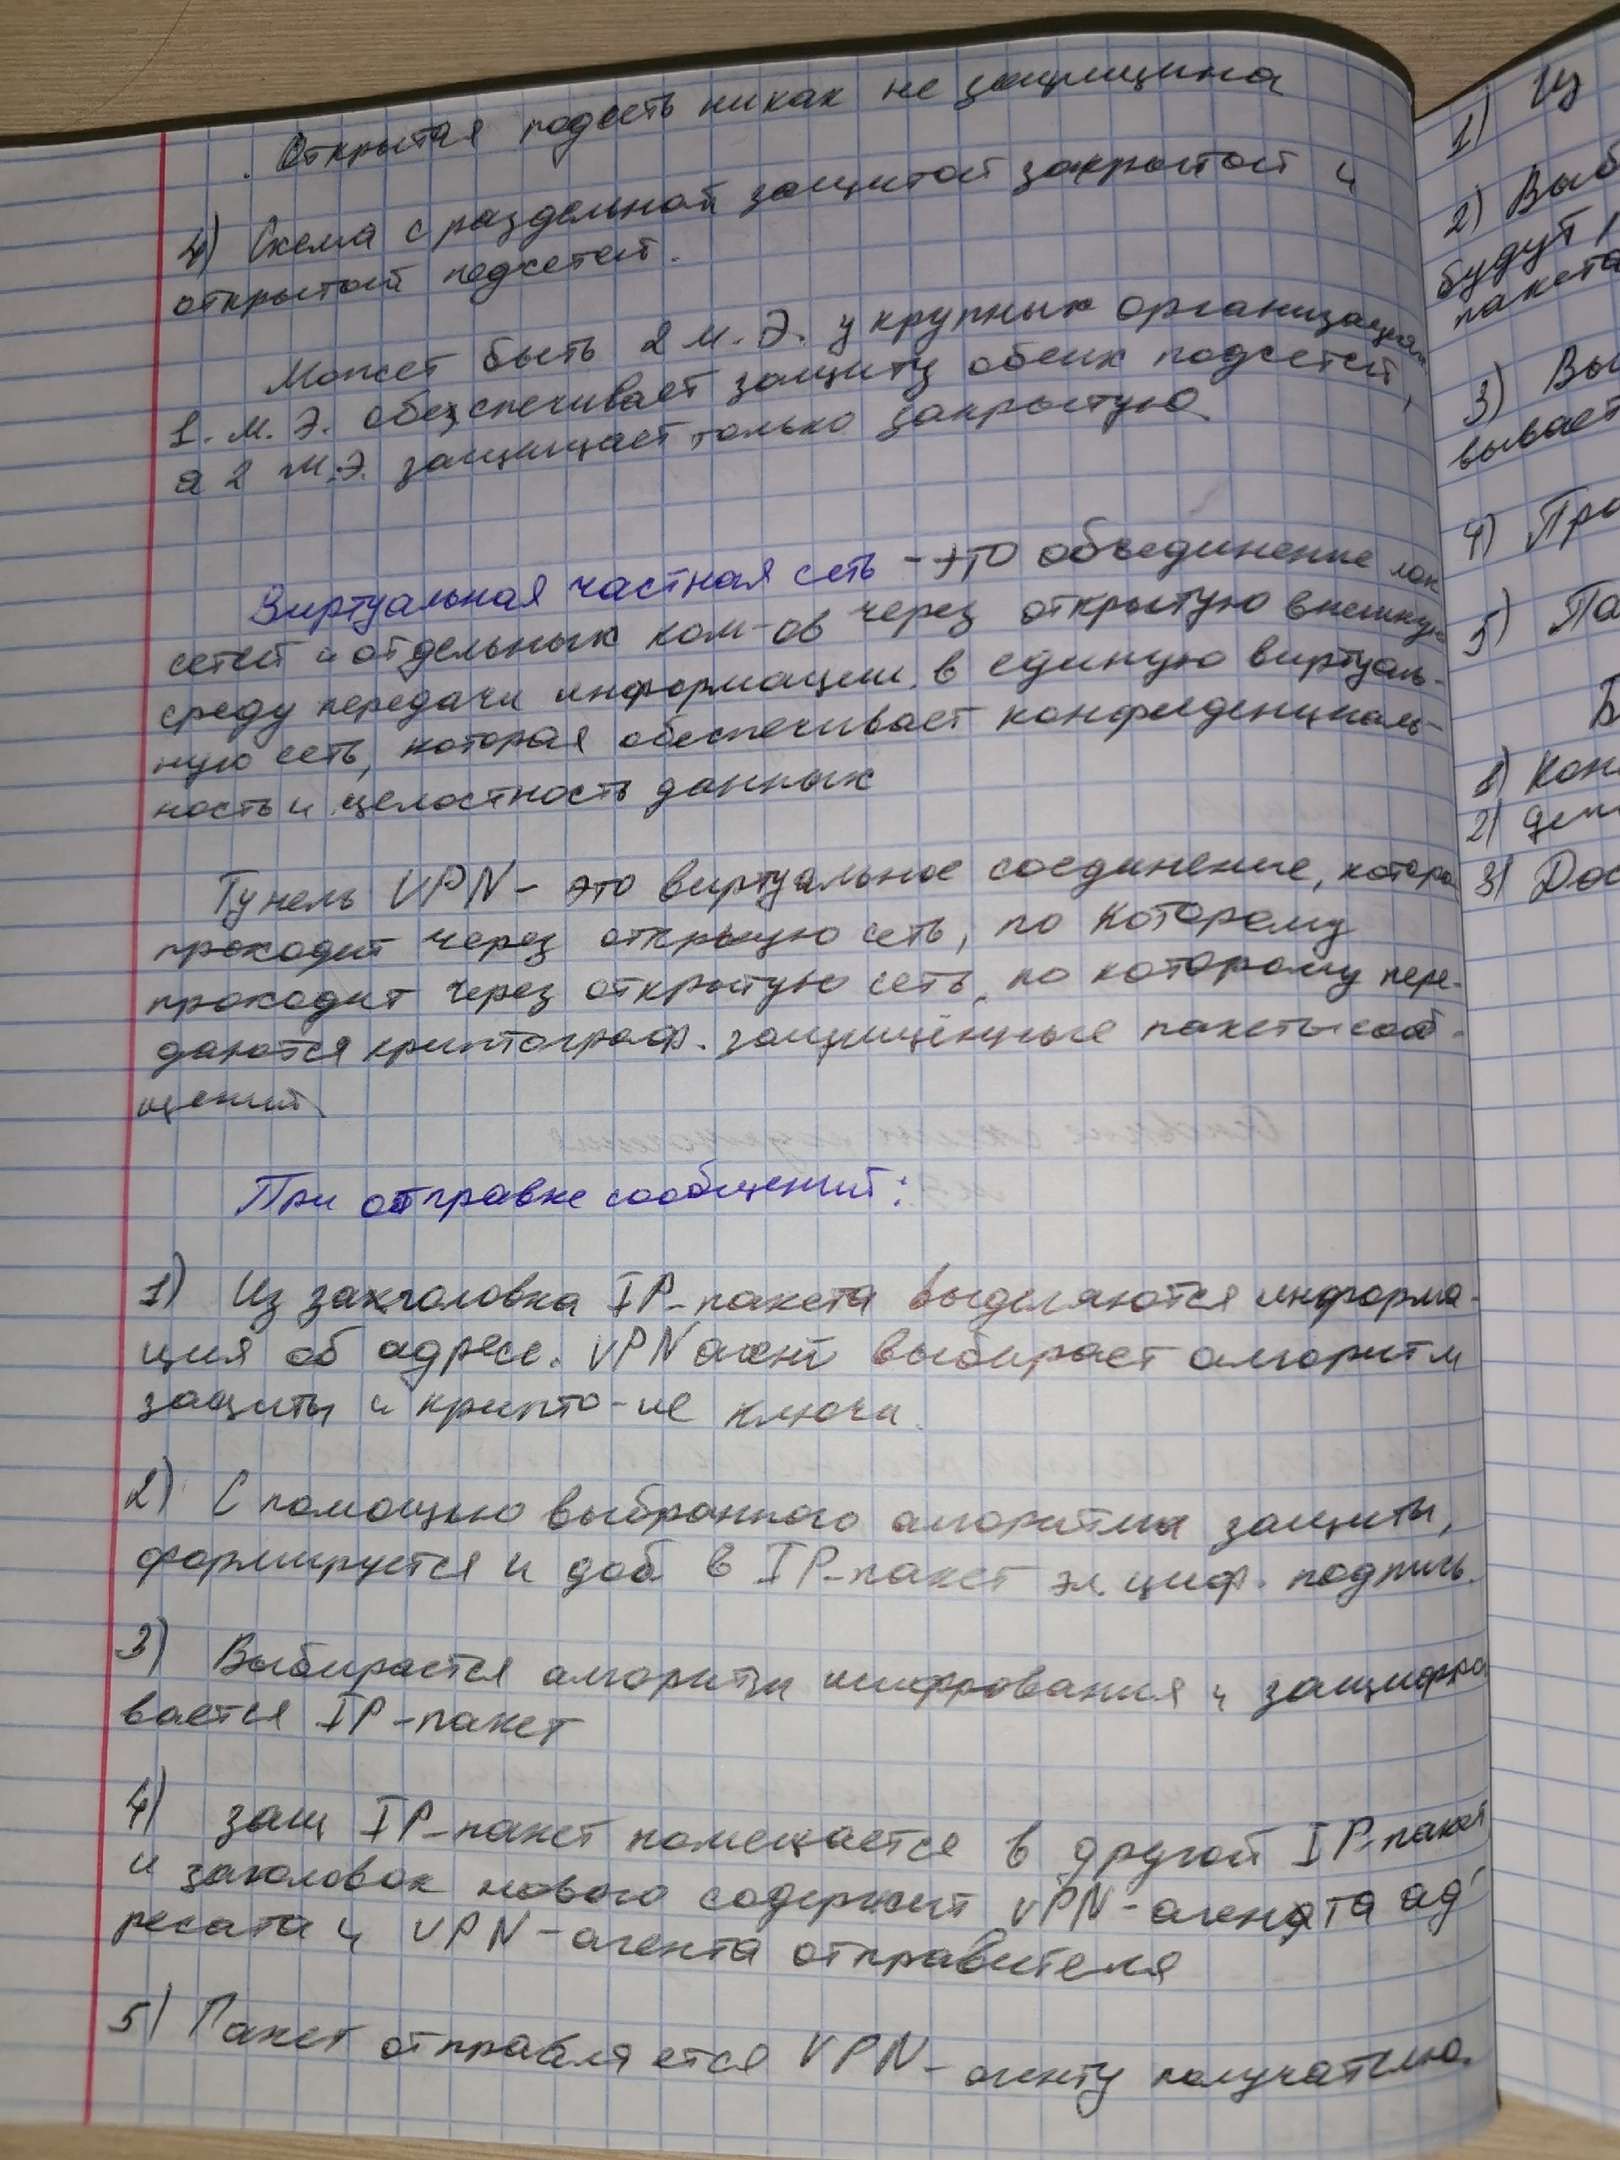 Открытая подсеть никак не защищина
4) Схема с раздельной защитой закрытой и
открытой подсетей.
Может быть 2 м.Э. у крупных организаций
1. м.Э. обеспечивает защиту обеих подсетей,
а 2 м.Э. защищает только закрытую
Виртуальная частная сеть - это объединение лок
сетей и отдельных ком-ов через открытую внешнюю
среду передачи информации в единую виртуаль-
ную сеть, которая обеспечивает конфиденциаль-
ность и целостность данных
Тунель VPN - это виртуальное соединение, которо
проходит через открыую сеть, по которому
проходит через открытую сеть, по которому пере-
даются криптограф. защищённые пакеты сооб-
щений
При отправке сообщений:
1) Из заголовка IP-пакета выделяются информа-
ция об адресе. VPN агент выбирает алгоритм
защиты и крипто-ие ключи.
2) С помощью выбранного алгоритма защиты,
формируется и доб в IP-пакет эл. циф. подпись.
3) Выбирается алгоритм шифрования и зашифро
вается IP-пакет
4) заш IP-пакет помещается в другой IP-пакет
и заголовок нового содержит VPN-агента ад
ресата и VPN-агента отправителя
5) Пакет отправляется VPN-агенту получателю.
1) Из
2) Выб
будут
пакета
3) Вы
вывает
4) Про
5) Па
1) Кон
2)
3) Дос